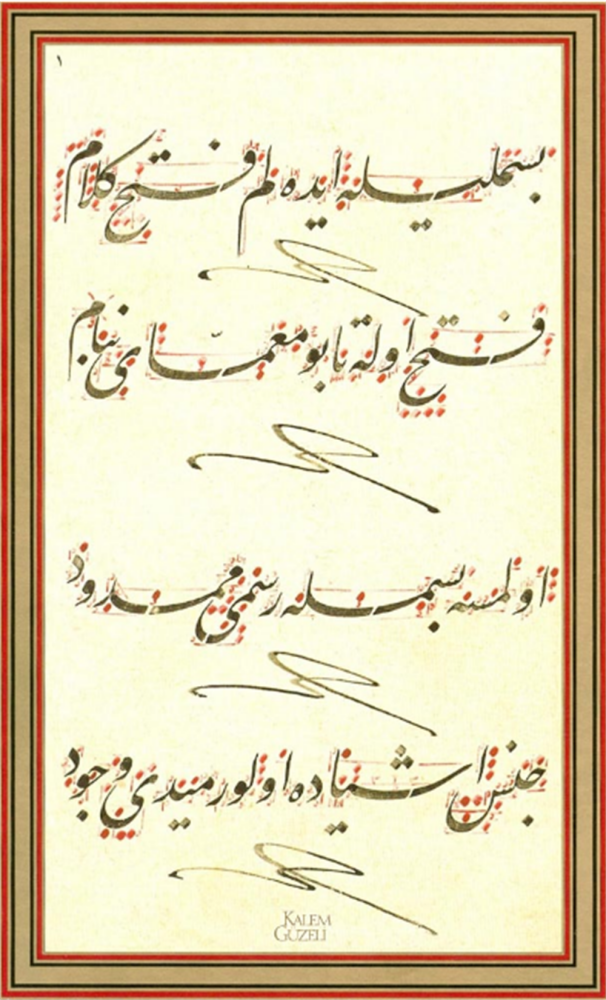 ١
بسمليله ايده لم فتح كلام
فتح اوله تا بو معمّاى بنام
اولمسه بسمله رسمى ممدود
جنس اشياده اولورميدى وجود
KALEM
GÜZELİ